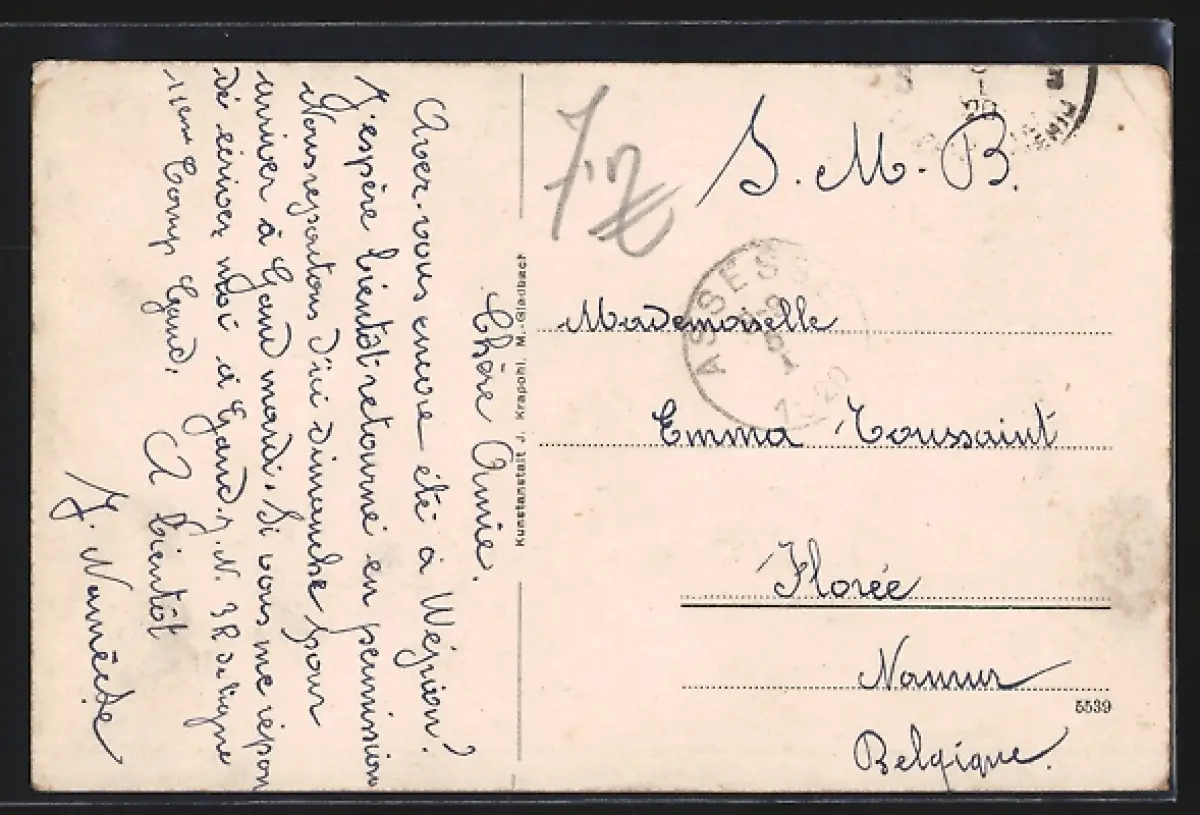 Chère Amie.
Avez-vous encore été à Wépion?
J'espère bientôt retourné en permission
Nous repartons d'ici dimanche pour
arriver à Gand mardi. Si vous me répon
dé écriver moi à Gand, J.N. 3R de ligne
11em Comp Gand.
A bientôt
J. Namêche
Kunstanstalt J. Krapohl, M.-Gladbach
S.M.B.
ASSESSE
Mademoiselle
Emma Toussaint
Florée
Namur
5539
Belgique.